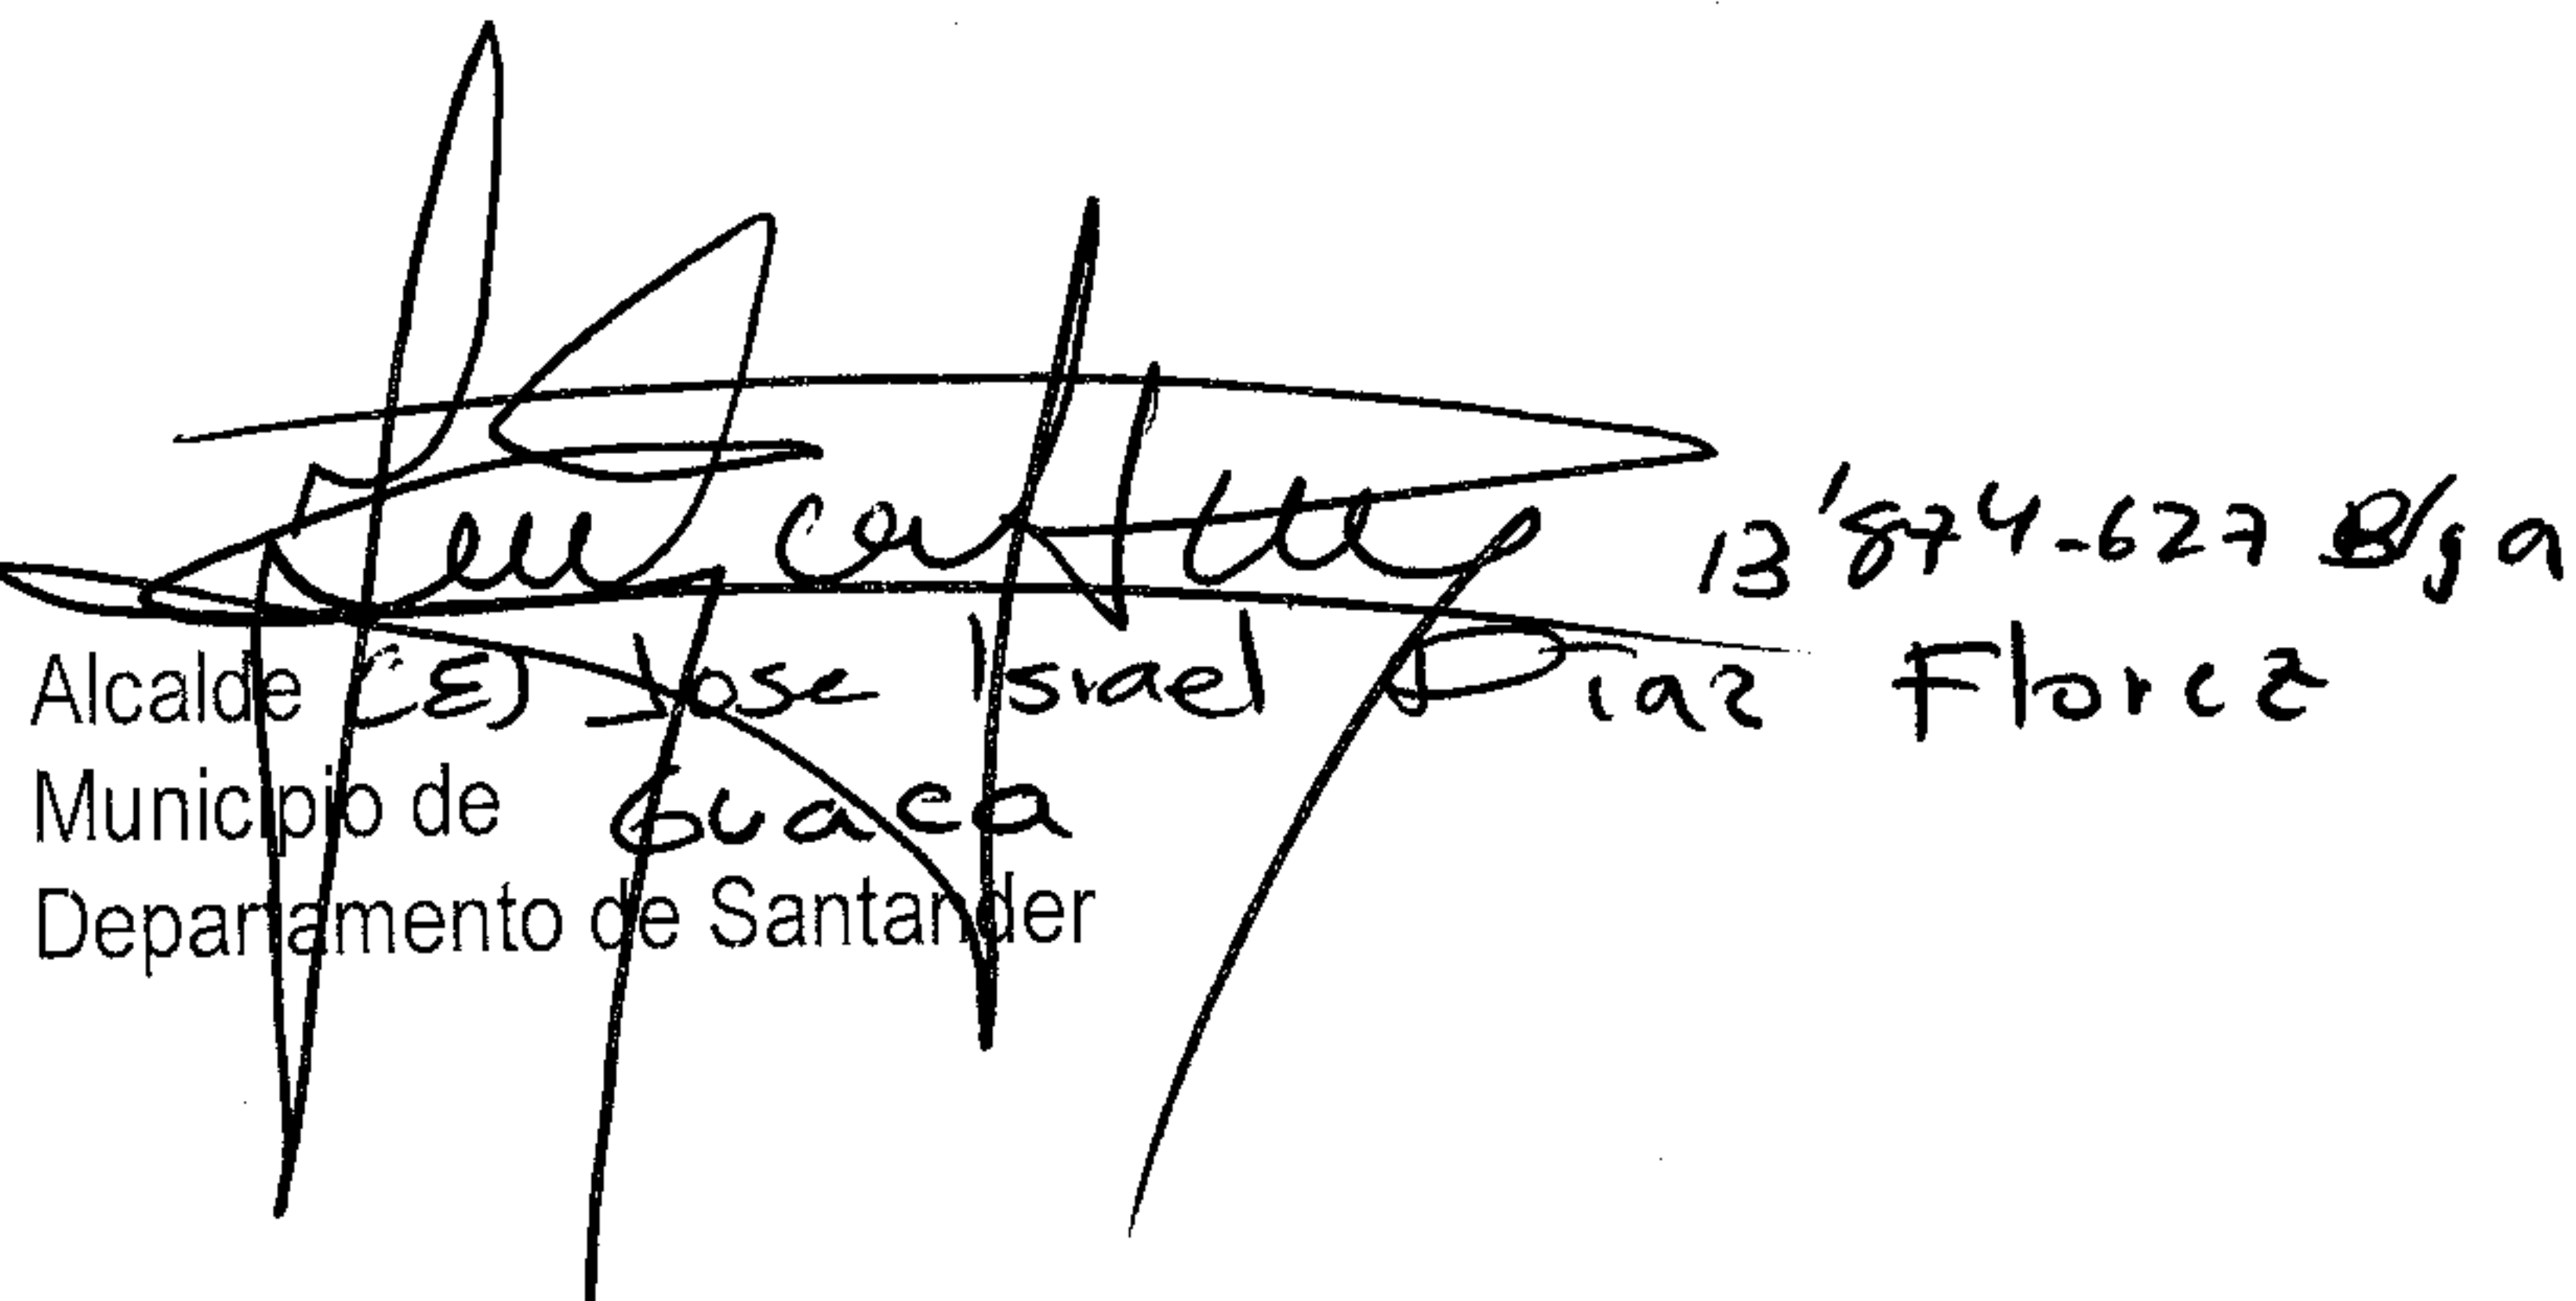 13'874-627 B/ga
Alcalde (E) Jose Israel Diaz Florez
Municipio de Guaca
Departamento de Santander